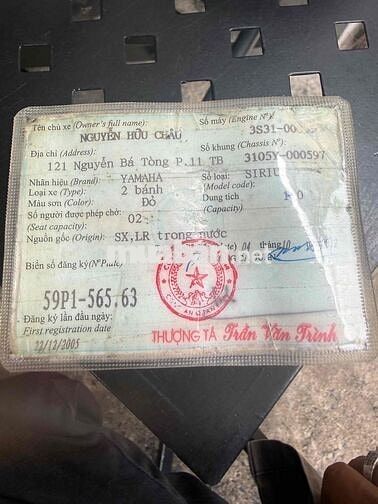 Tên chủ xe (Owner's full name):
NGUYỄN HỮU CHÂU
Số máy (Engine Nº):
3S31-00
Địa chỉ (Address):
121 Nguyễn Bá Tòng P.11 TB
Số khung (Chassis Nº)
3105Y-000597
Nhãn hiệu (Brand): YAMAHA
Số loại: SIRIU
(Model code):
Loại xe (Type): 2 bánh
Màu sơn (Color): Đỏ
Dung tích
(Capacity)
Số người được phép chở: 02
(Seat capacity)
Nguồn gốc (Origin): SX,LR trong nước
04 tháng 10
Biển số đăng ký (Nºplate)
59P1-565.63
Đăng ký lần đầu ngày:
First registration date
22/12/2005
THƯỢNG TÁ Trần Văn Trình